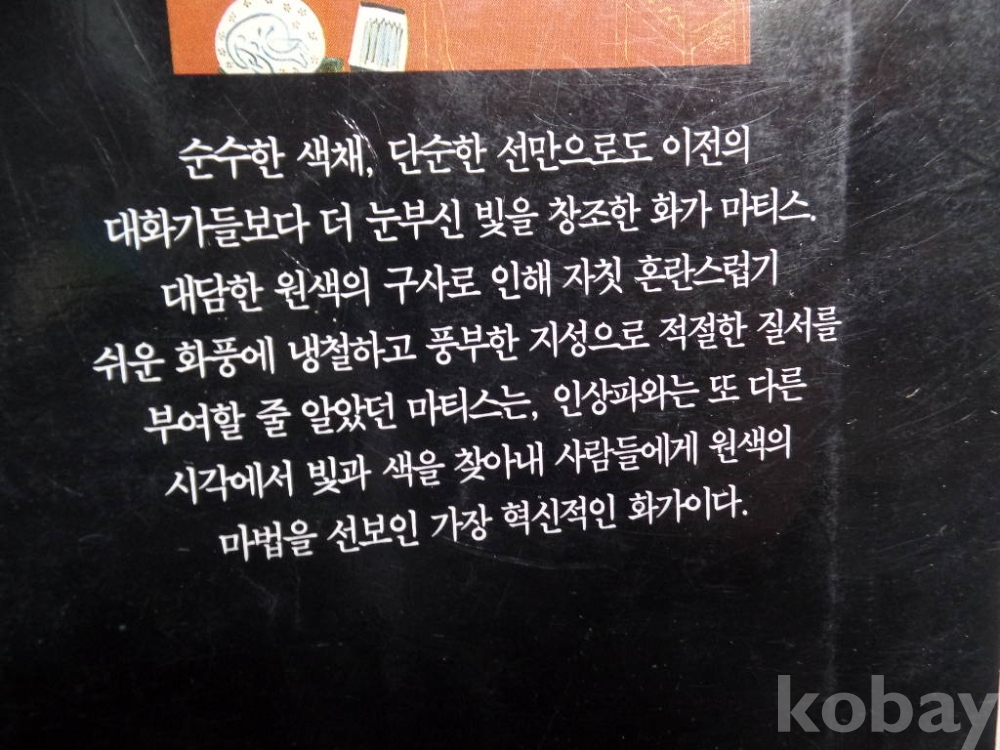 순수한 색채, 단순한 선만으로도 이전의
대화가들보다 더 눈부신 빛을 창조한 화가 마티스.
대담한 원색의 구사로 인해 자칫 혼란스럽기
쉬운 화풍에 냉철하고 풍부한 지성으로 적절한 질서를
부여할 줄 알았던 마티스는, 인상파와는 또 다른
시각에서 빛과 색을 찾아내 사람들에게 원색의
마법을 선보인 가장 혁신적인 화가이다.
kobay